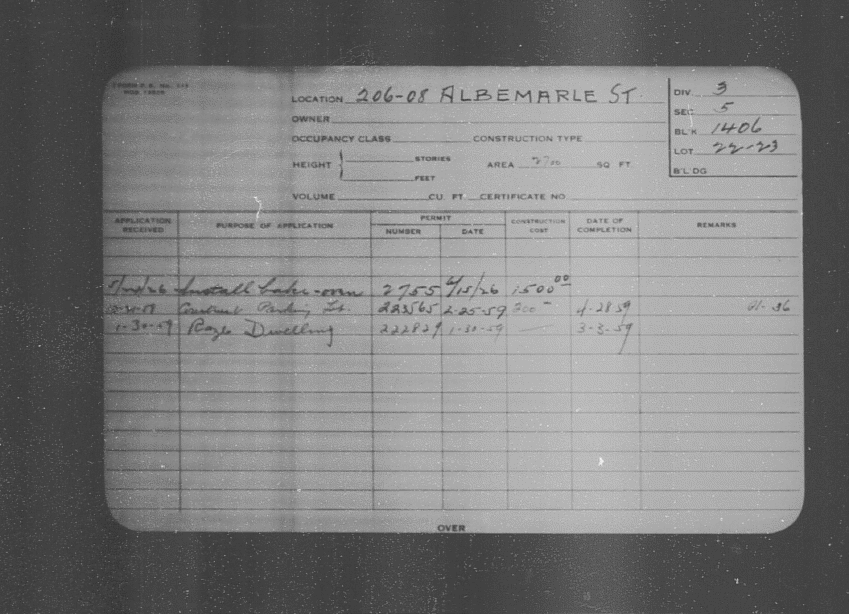 LOCATION 206-08 ALBEMARLE ST.
OWNER
OCCUPANCY CLASS CONSTRUCTION TYPE
HEIGHT STORIES FEET AREA 2700 SQ. FT.
VOLUME CU. FT. CERTIFICATE NO
DIV. 3
SEC. 5
BL'K 1406
LOT 22-23
B'LDG
APPLICATION RECEIVED PURPOSE OF APPLICATION PERMIT NUMBER DATE CONSTRUCTION COST DATE OF COMPLETION REMARKS
Install bake-oven 2755 6/15/26 1500 00
Construct Parking Lot. 223565 2-25-59 200 - 4-28-59
1-30-59 Raze Dwelling 222829 1-30-59 3-3-59
OVER